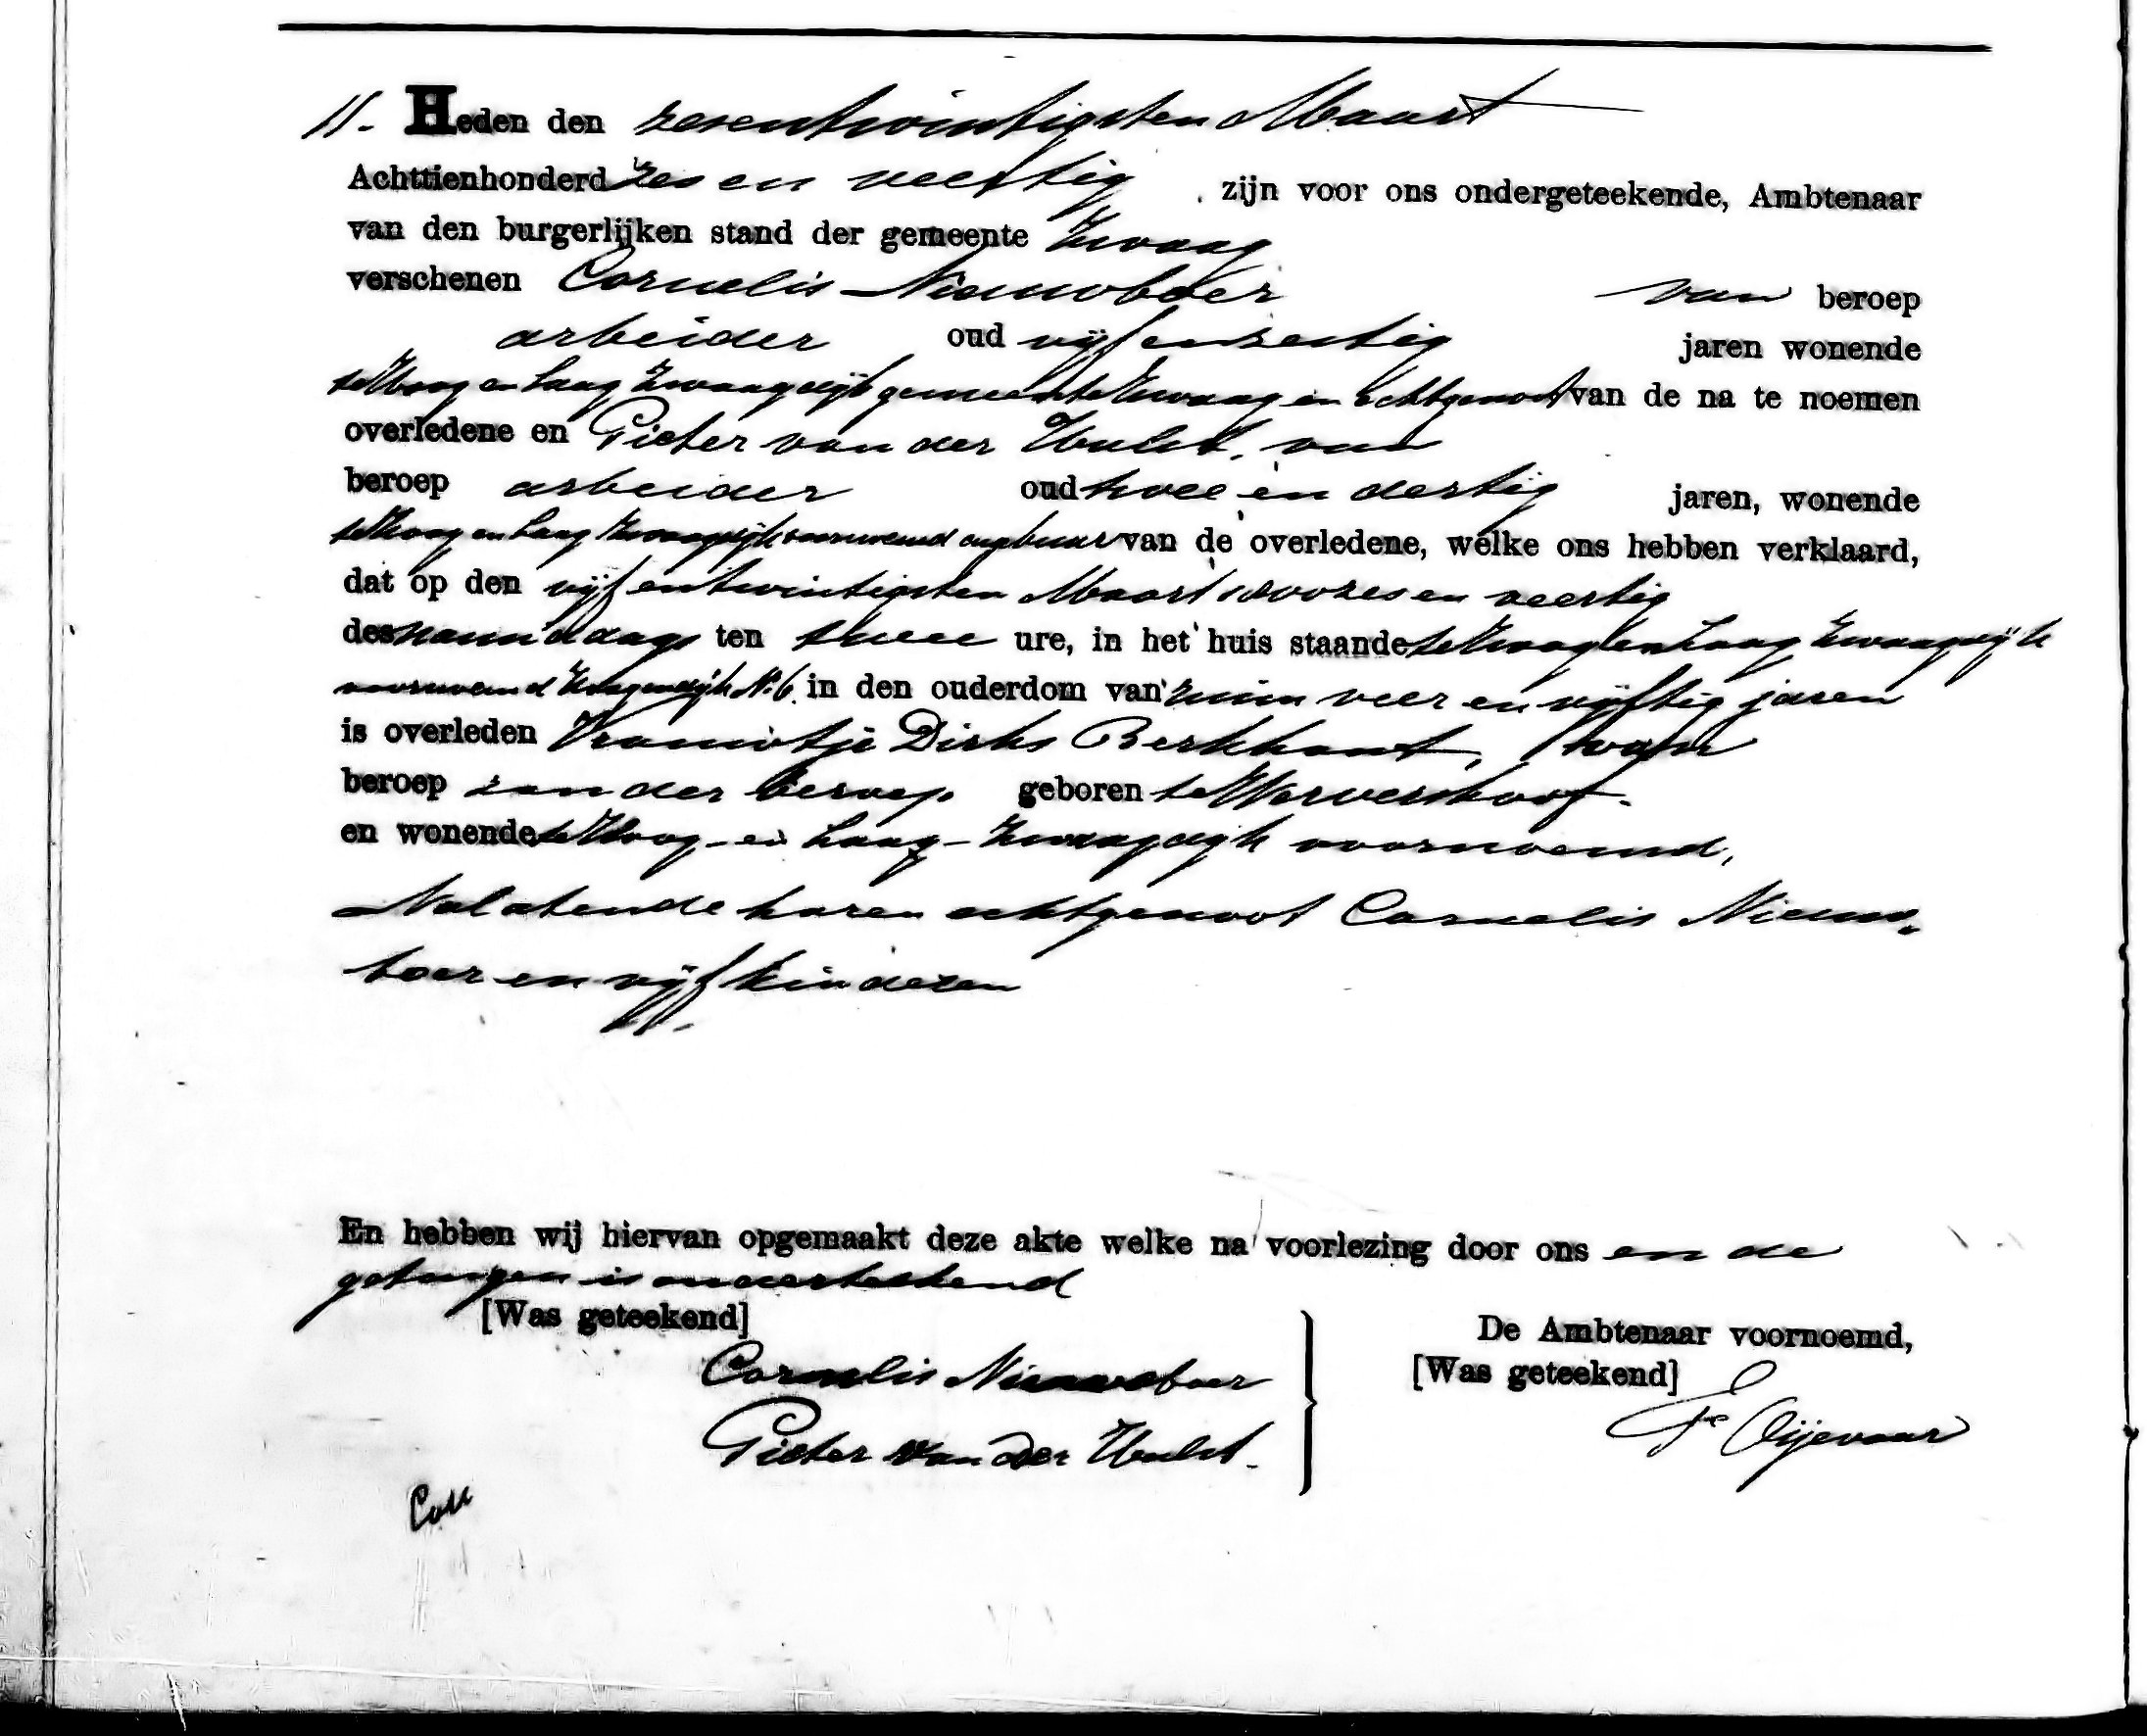 11. Heden den zesentwintigsten Maart
Achttienhonderd zes en veertig, zijn voor ons ondergeteekende, Ambtenaar
van den burgerlijken stand der gemeente Zwaag
verschenen Cornelis Nieuwboer van beroep
arbeider oud vijf en zestig jaren wonende
te Hoog en Laag Zwaagdijk gemeente Zwaag en echtgenoot van de na te noemen
overledene en Pieter van der Hulst, van
beroep arbeider oud twee en dertig jaren, wonende
te Hoog en Laag Zwaagdijk voornoemd en gebuur van de overledene, welke ons hebben verklaard,
dat op den vijf entwintigsten Maart 1800 zes en veertig
des namiddags ten twee ure, in het huis staande te Hoog en Laag Zwaagdijk
voornoemd Zwaagdijk No 6. in den ouderdom van ruim veer en vijftig jaren
is overleden Vrouwtje Dirks Berkhout, van
beroep zonder beroep geboren te Wervershoof.
en wonende te Hoog- en Laag- Zwaagdijk voornoemd,
Nalatende haren echtgenoot Cornelis Nieuw-
boer en vijf kinderen
En hebben wij hiervan opgemaakt deze akte welke na voorlezing door ons en de
getuigen is onderteekend
[Was geteekend]
Cornelis Nieuweboer
Pieter van der Hulst.
De Ambtenaar voornoemd,
[Was geteekend]
Coll